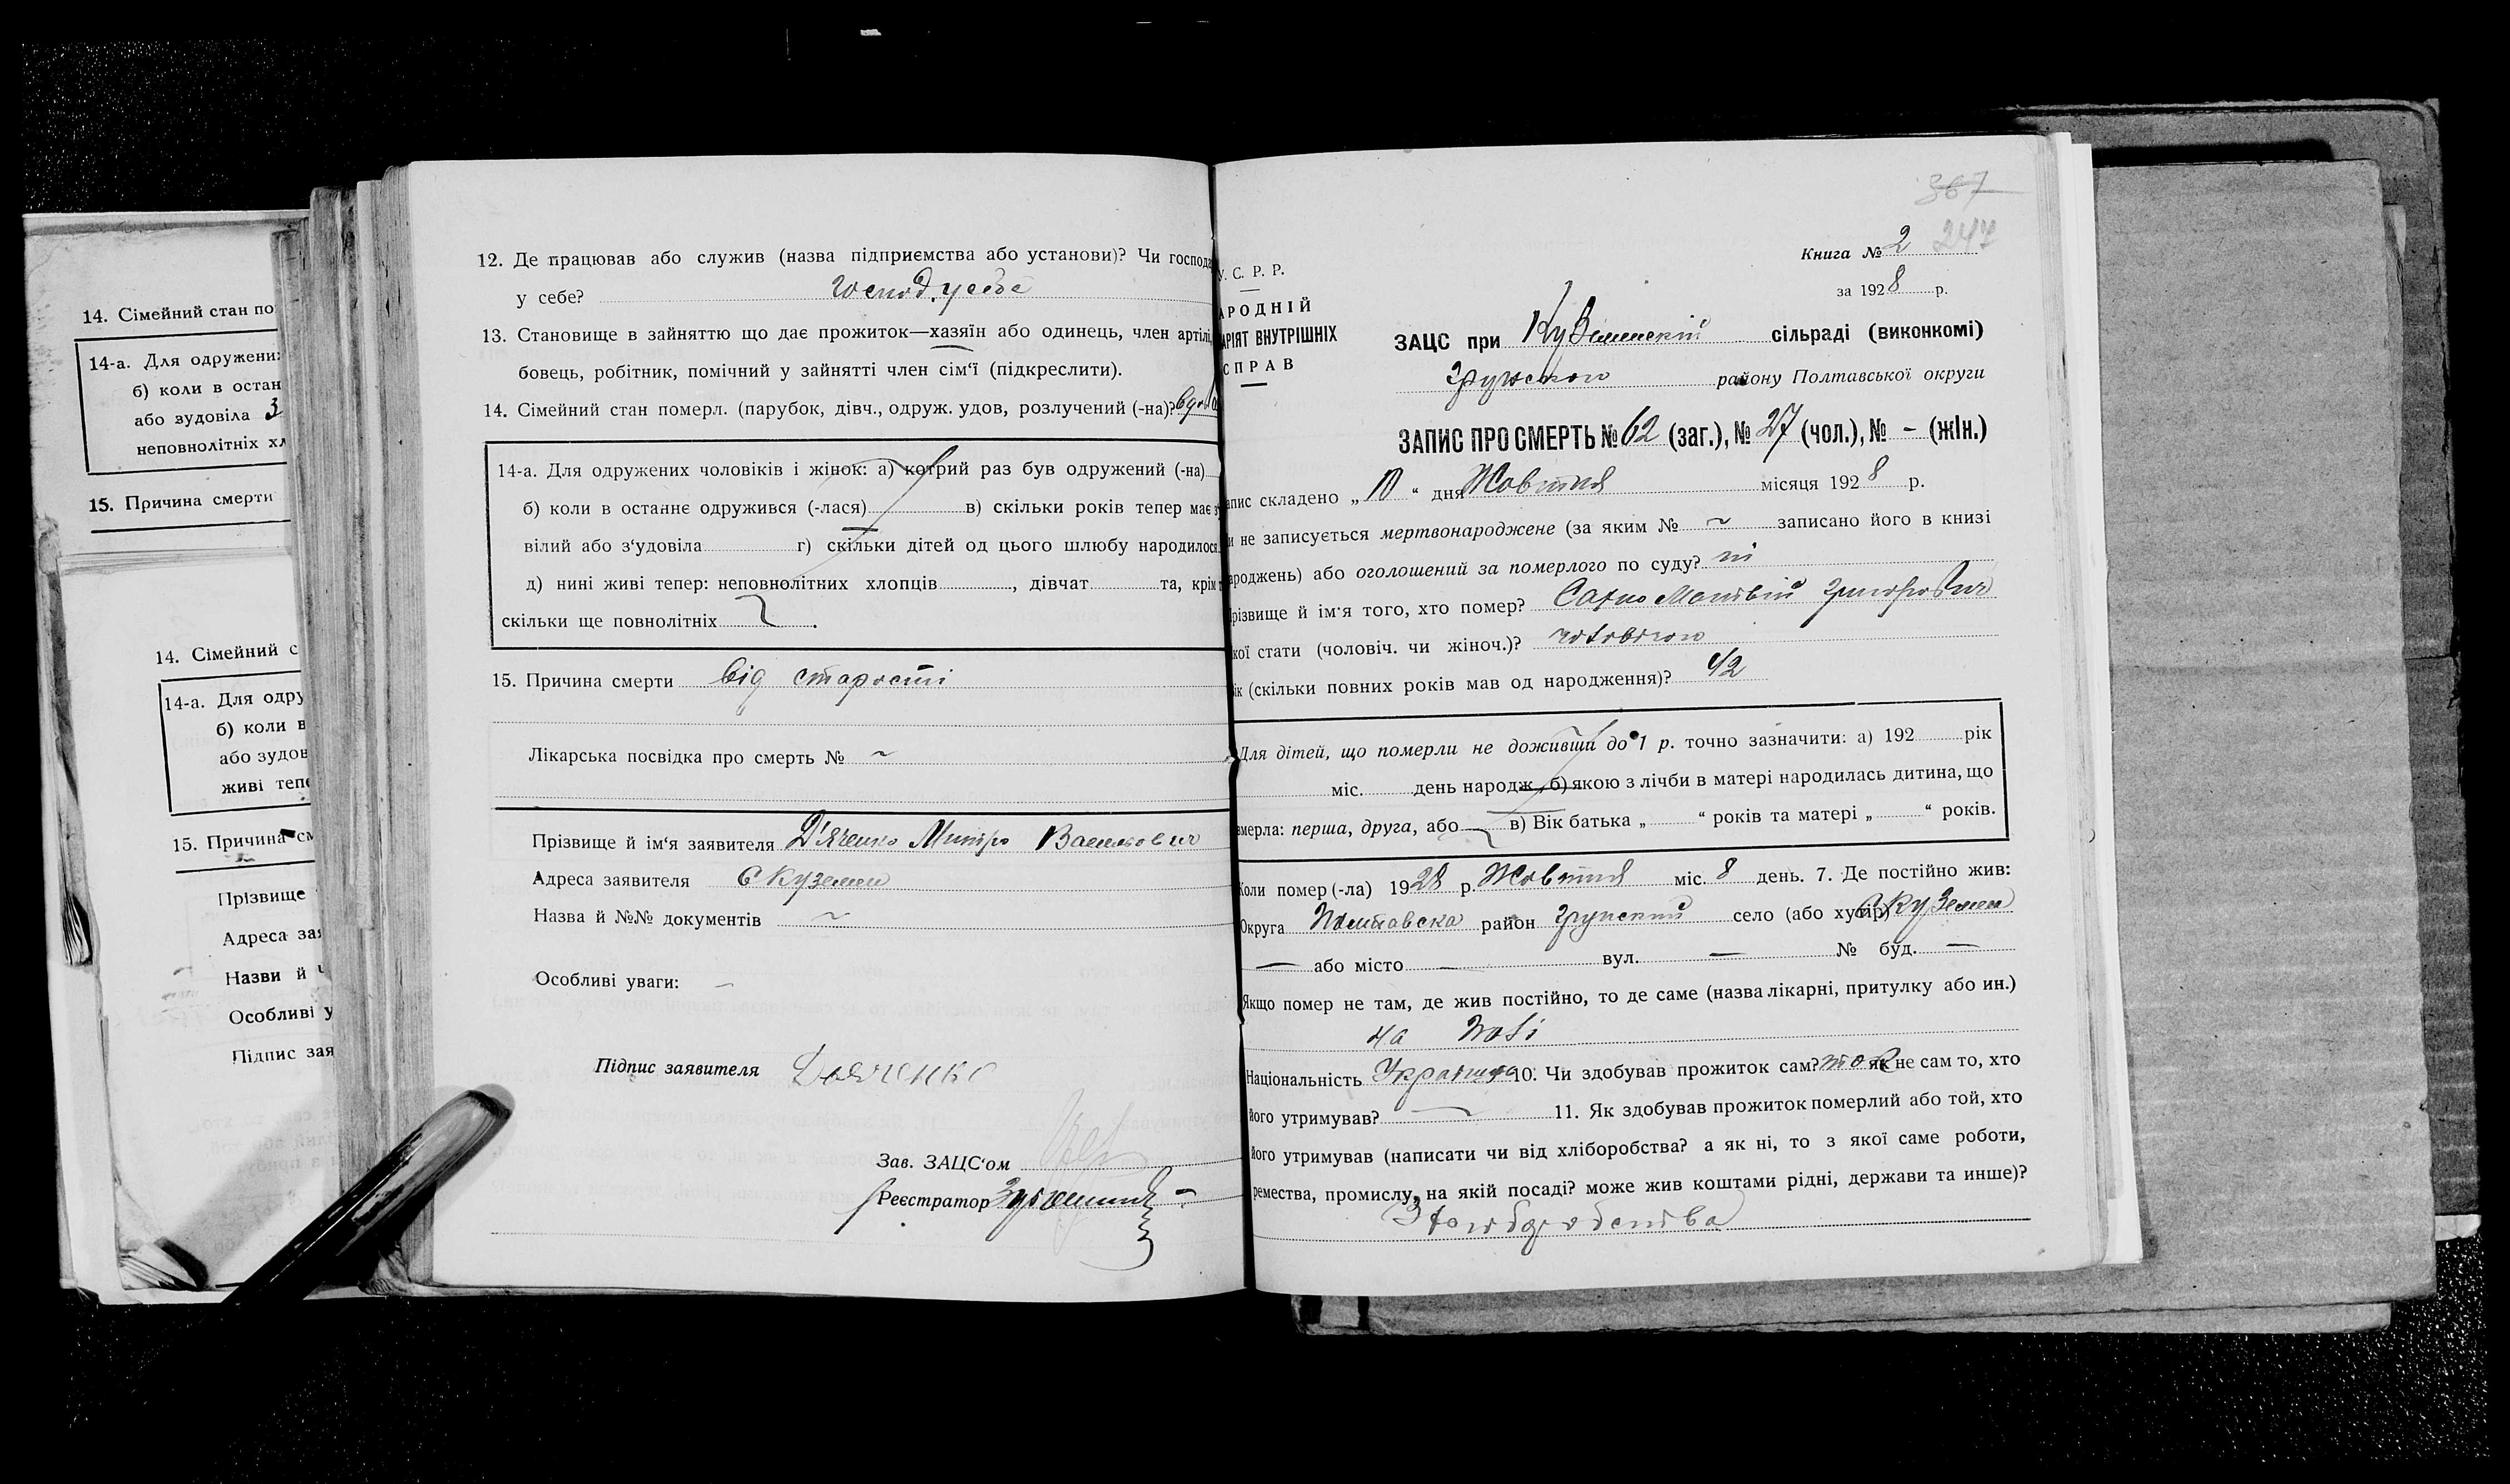 14. Сімейний стан по
14-а. Для одружених
б) коли в остан
або зудовіла З
неповнолітніх хл
15. Причина смерти
14. Сімейний с
14-а. Для одру
б) коли в
або зудов
живі тепе
15. Причина см
Прізвище
Адреса зая
Назви й
Особливі у
Підпис зая
12. Де працював або служив (назва підприємства або установи)? Чи господа
у себе? господ. у себе
13. Становище в зайняттю що дає прожиток—хазяїн або одинець, член артілі,
бовець, робітник, помічний у зайнятті член сім‘ї (підкреслити).
14. Сімейний стан померл. (парубок, дівч., одруж. удов, розлучений (-на)?
14-а. Для одружених чоловіків і жінок: а) котрий раз був одружений (-на)
б) коли в останнє одружився (-лася) в) скільки років тепер має
вілий або з‘удовіла г) скільки дітей од цього шлюбу народилося
д) нині живі тепер: неповнолітних хлопців , дівчат та, крім
скільки ще повнолітніх .
15. Причина смерти від старости
Лікарська посвідка про смерть № ~
Прізвище й ім‘я заявителя Дяченко Митро Васильович
Адреса заявителя с Куземен
Назва й №№ документів ~
Особливі уваги: –
Підпис заявителя Дяченко
Зав. ЗАЦС‘ом
Реєстратор
367
247
Книга № 2
за 1928 р.
У. С. Р. Р.
АРОДНІЙ
АРІЯТ ВНУТРІШНІХ
СПРАВ
ЗАЦС при Куземенскій сільраді (виконкомі)
Грунского району Полтавської округи
ЗАПИС ПРО СМЕРТЬ № 62 (заг.), № 27 (чол.), № – (жін.)
апис складено „ 10 “ дня Жовтня місяця 1928 р.
и не записується мертвонароджене (за яким № ~ записано його в книзі
ароджень) або оголошений за померлого по суду? ні
різвище й ім‘я того, хто помер? Сахно Матвій Григорович
кої стати (чоловіч. чи жіноч.)? чоловічого
ік (скільки повних років мав од народження)?
Для дітей, що померли не доживши до 1 р. точно зазначити: а) 192 рік
міс. день народж. б) якою з лічби в матері народилась дитина, що
вмерла: перша, друга, або в) Вік батька „ “ років та матері „ “ років.
Коли помер (-ла) 1928 р. Жовтня міс. 8 день. 7. Де постійно жив:
Округа Полтавска район Грунский село (або хутір) с Куземен
— або місто — вул. — № буд. —
Якщо помер не там, де жив постійно, то де саме (назва лікарні, притулку або ин.)
на полі
Національність Українец 10. Чи здобував прожиток сам? так як не сам то, хто
його утримував? — 11. Як здобував прожиток померлий або той, хто
його утримував (написати чи від хліборобства? а як ні, то з якої саме роботи,
ремества, промислу, на якій посаді? може жив коштами рідні, держави та инше)?
З хліборобства